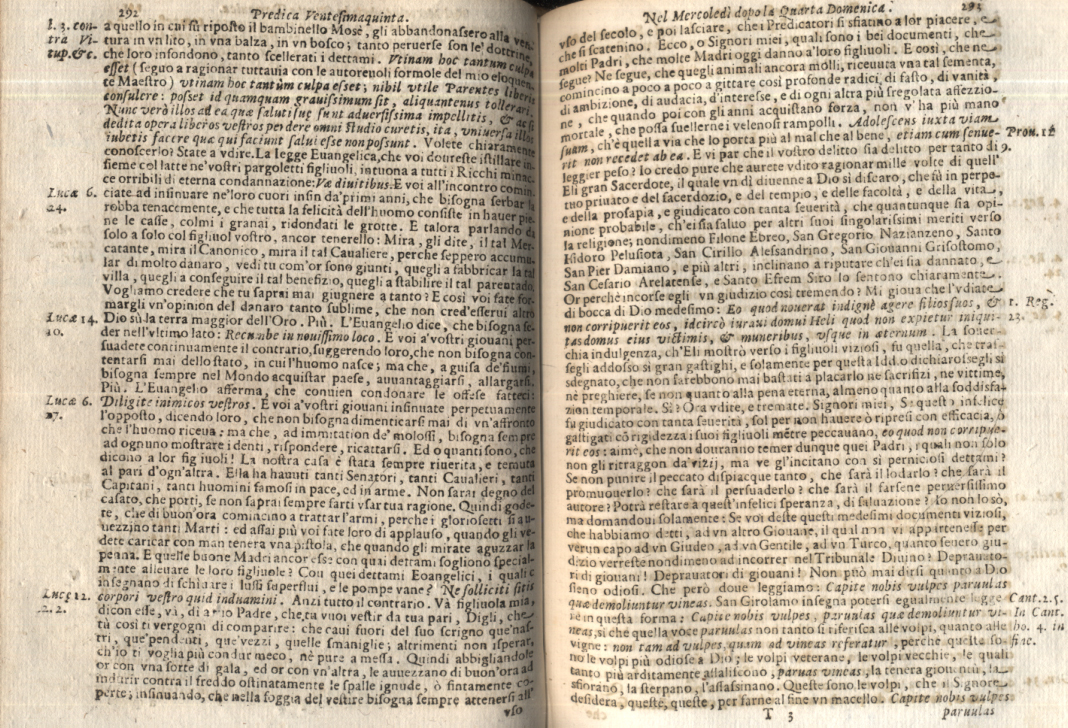 292 Predica Ventesimaquinta.
l. 3. con-
tra Vi-
tup.&c.
a quello in cui fù riposto il bambinello Mosè, gli abbandonassero alla ven-
tura in vn lito, in vna balza, in vn bosco; tanto peruerse son le dottrine,
che loro infondono, tanto scellerati i dettami. Vtinam hoc tantum culpa
esset (seguo a ragionar tuttauia con le autoreuoli formole del mio eloquen-
te Maestro) vtinam hoc tantum culpa esset; nihil vtile Parentes liberis
consulere: posset id quamquam grauissimum sit, aliquantenus tollerari.
Nunc verò illos ad ea quæ saluti suæ sunt aduersissima impellitis, & ac si
dedita opera liberos vestros perdere omni studio curetis, ita, vniuersa illos
iubetis facere quæ qui faciunt salui esse non possunt. Volete chiaramente
conoscerlo? State a vdire. La legge Euangelica, che voi doureste istillare in-
sieme col latte ne'vostri pargoletti figliuoli, intuona a tutti i Ricchi minac-
ce orribili di eterna condannazione: Væ diuitibus: E voi all'incontro comin-
Lucæ 6.
24.
ciate ad insinuare ne'loro cuori infin da'primi anni, che bisogna serbar la
robba tenacemente, e che tutta la felicità dell'huomo consiste in hauer pie-
ne le casse, colmi i granai, ridondati le grotte. E talora parlando da
solo a solo col figliuol vostro, ancor tenerello: Mira, gli dite, il tal Mer-
catante, mira il Canonico, mira il tal Caualiere, perche seppero accumu-
lar di molto danaro, vedi tu com'or sono giunti, quegli a fabbricar la tal
villa, quegli a conseguire il tal benefizio, quegli a stabilire il tal parentado.
Vogliamo credere che tu saprai mai giugnere a tanto? E così voi fate for-
margli vn'opinion del danaro tanto sublime, che non cred'esserui altro
Lucæ 14.
10.
Dio sù la terra maggior dell'Oro. Più. L'Euangelio dice, che bisogna se-
der nell'vltimo lato: Recumbe in nouissimo loco. E voi a'vostri giouani per-
suadete continuamente il contrario, suggerendo loro, che non bisogna con-
tentarsi mai dello stato, in cui l'huomo nasce; ma che, a guisa de'fiumi,
bisogna sempre nel Mondo acquistar paese, auuantaggiarsi, allargarsi.
Più. L'Euangelio afferma, che conuien condonare le offese fatteci:
Lucæ 6.
27.
Diligite inimicos vestros. E voi a'vostri giouani insinuate perpetuamente
l'opposto, dicendo loro, che non bisogna dimenticarsi mai di vn'affronto
che l'huomo riceua; ma che, ad immitation de' molossi, bisogna sempre
ad ognuno mostrare i denti, rispondere, ricattarsi. Ed o quanti sono, che
dicono a lor figliuoli! La nostra casa è stata sempre riuerita, e temuta
al pari d'ogn'altra. Ella ha hauuti tanti Senatori, tanti Caualieri, tanti
Capitani, tanti huomini famosi in pace, ed in arme. Non sarai degno del
casato, che porti, se non saprai sempre farti vsar tua ragione. Quindi gode-
te, che di buon'ora comincino a trattar l'armi, perche i gloriosetti si au-
uezzino tanti Marti: ed assai più voi fate loro di applauso, quando gli ve-
dete caricar con man tenera vna pistola, che quando gli mirate aguzzar la
penna. E quelle buone Madri ancor esse con quai dettami sogliono special-
mente alleuare le loro figliuole? Con quei dettami Eoangelici, i quali c'
insegnano di schiuare i lussi superflui, e le pompe vane? Ne solliciti sitis
Lucæ 12.
22.
corpori vestro quid induamini. Anzi tutto il contrario. Và figliuola mia,
dicon esse, và, di a tuo Padre, che tu vuoi vestir da tua pari, Digli, che
tù così ti vergogni di comparire: che caui fuori del suo scrigno que'nas-
tri, que'pendenti, que'vezzi, quelle smaniglie; altrimenti non isperar,
ch'io ti voglia più condur meco, nè pure a messa. Quindi abbigliandole
or con vna sorte di gala, ed or con vn'altra, le auuezzano di buon'ora ad
indurir contra il freddo ostinatamente le spalle ignude, ò fintamente co-
perte; insinuando, che nella foggia del vestire bisogna sempre attenersi all'
vso
Nel Mercoledì dopo la Quarta Domenica. 293
vso del secolo, e poi lasciare, che i Predicatori si sfiatino a lor piacere, e
che si scatenino. Ecco, o Signori miei, quali sono i bei documenti, che
molti Padri, che molte Madri oggi danno a'loro figliuoli. E così, che ne
segue? Ne segue, che quegli animali ancora molli, riceuuta vna tal sementa,
comincino a poco a poco a gittare così profonde radici, di fasto, di vanità,
di ambizione, di audacia, d'interesse, e di ogni altra più sregolata affezzio-
ne, che quando poi con gli anni acquistano forza, non v' ha più mano
mortale, che possa suellerne i velenosi rampolli. Adolescens iuxta viam
suam, ch'è quella via che lo porta più al mal che al bene, etiam cum senue-
Prou. 12
9.
rit non recedet ab ea. E vi par che il vostro delitto sia delitto per tanto di
leggier peso? Io credo pure che aurete vdito ragionar mille volte di quell'
Eli gran Sacerdote, il quale vn dì diuenne a Dio sì discaro, che fù in perpe-
tuo priuato e del sacerdozio, e del tempio, e delle facoltà, e della vita,
e della prosapia, e giudicato con tanta seuerità, che quantunque sia opi-
nione probabile, ch'ei sia saluo per altri suoi singolarissimi meriti verso
la religione; nondimeno Filone Ebreo, San Gregorio Nazianzeno, Santo
Isidoro Pelusiota, San Cirillo Alessandrino, San Giouanni Grisostomo,
San Pier Damiano, e più altri, inclinano a riputare ch'ei sia dannato, e
San Cesario Arelatense, e Santo Efrem Siro lo sentono chiaramente.
Or perchè incorse egli vn giudizio così tremendo? Mi gioua che l'vdiate
di bocca di Dio medesimo: Eo quod nouerat indignè agere filios suos, &
1. Reg.
23.
non corripuerit eos, idcircò iuraui domui Heli quod non expietur iniqui-
tas domus eius victimis, & muneribus, vsque in æternum. La souer-
chia indulgenza, ch'Eli mostrò verso i figliuoli viziosi, fu quella, che tras-
segli addosso sì gran gastighi, e solamente per questa Iddio dichiarossegli sì
sdegnato, che non sarebbono mai bastati a placarlo ne sacrifizi, ne vittime,
nè preghiere, se non quanto alla pena eterna, almeno quanto alla soddisfa-
zion temporale. Sì? Ora vdite, e tremate. Signori miei, Se questo infelice
fu giudicato con tanta seuerità, sol per non hauere ò ripresi con efficacia, ò
gastigati cō rigidezza i suoi figliuoli mētre peccauano, eo quod non corripue-
rit eos: aime, che non douranno temer dunque quei Padri, i quali non solo
non gli ritraggon da'vizij, ma ve gl'incitano con sì perniciosi dettami?
Se non punire il peccato dispiacque tanto, che sarà il lodarlo? che sarà il
promuouerlo? che sarà il persuaderlo? che sarà il farsene peruersissimo
autore? Potrà restare a quest'infelici speranza, di saluazione? Io non lo sò,
ma domandoui solamente: Se voi deste questi medesimi documenti viziosi,
che habbiamo detti, ad vn altro Giouane, il qual non vi appartenesse per
verun capo ad vn Giudeo, ad vn Gentile, ad vn Turco, quanto seuero giu-
dizio verreste nondimeno ad incorrer nel Tribunale Diuino? Deprauato-
ri di giouani! Deprauatori di giouani! Non può mai dirsi quanto a Dio
sieno odiosi. Che però doue leggiamo: Capite nobis vulpes paruulas
quæ demoliuntur vineas. San Girolamo insegna potersi egualmente legge-
Cant. 2.5.
re in questa forma: Capite nobis vulpes, paruulas quæ demoliuntur vi-
In Cant.
neas, sì che quella voce paruulas non tanto si riferisca alle volpi, quanto alle
ho. 4. in
vigne: non tam ad vulpes, quam ad vineas referatur, perche queste so-
fine.
no le volpi più odiose a Dio; le volpi veterane, le volpi vecchie, le quali
tanto più arditamente assaliscono, paruas vineas, la tenera giouentù, la
sfiorano, la sterpano, l'assassinano. Queste sono le volpi, che il Signore
desidera, queste, queste, per farne al fine vn macello. Capite nobis vulpes
T 3 paruulas